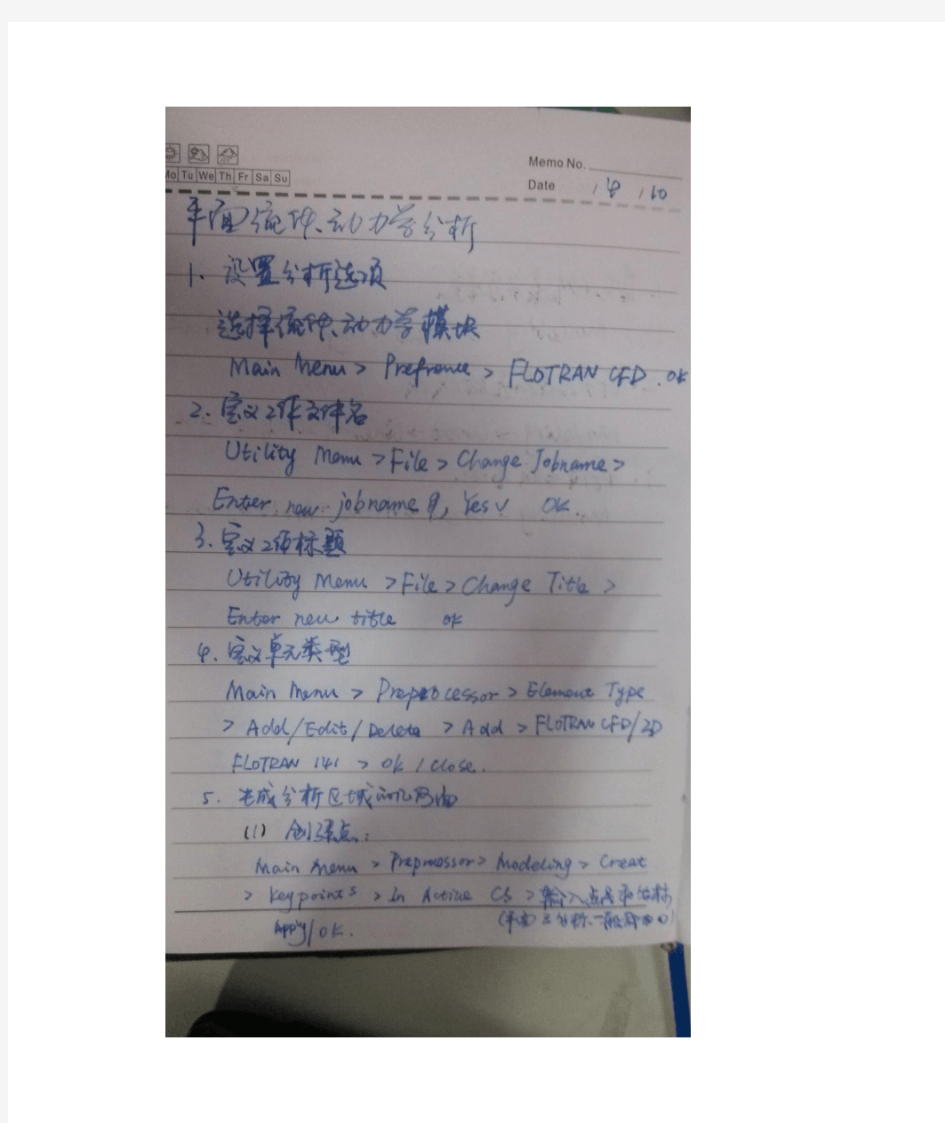 Memo No.
Mo Tu We Th Fr Sa Su
Date / 4 / 10
平面流体动力学分析
1. 设置分析选项
选择流体动力学模块
Main Menu > Prefrence > FLOTRAN CFD. OK
2. 定义工作文件名
Utility Menu > File > Change Jobname >
Enter new jobname, Yes√ OK.
3. 定义工作标题
Utility Menu > File > Change Title >
Enter new title ok
4. 定义单元类型
Main Menu > Preprocessor > Element Type
> Add/Edit/Delete > Add > FLOTRAN CFD/2D
FLOTRAN 141 > ok / close.
5. 生成分析区域
(1) 创建点:
Main Menu > Preprossor > Modeling > Creat
> Keypoints > In Active CS > 输入点号和坐标
Apply/ok.